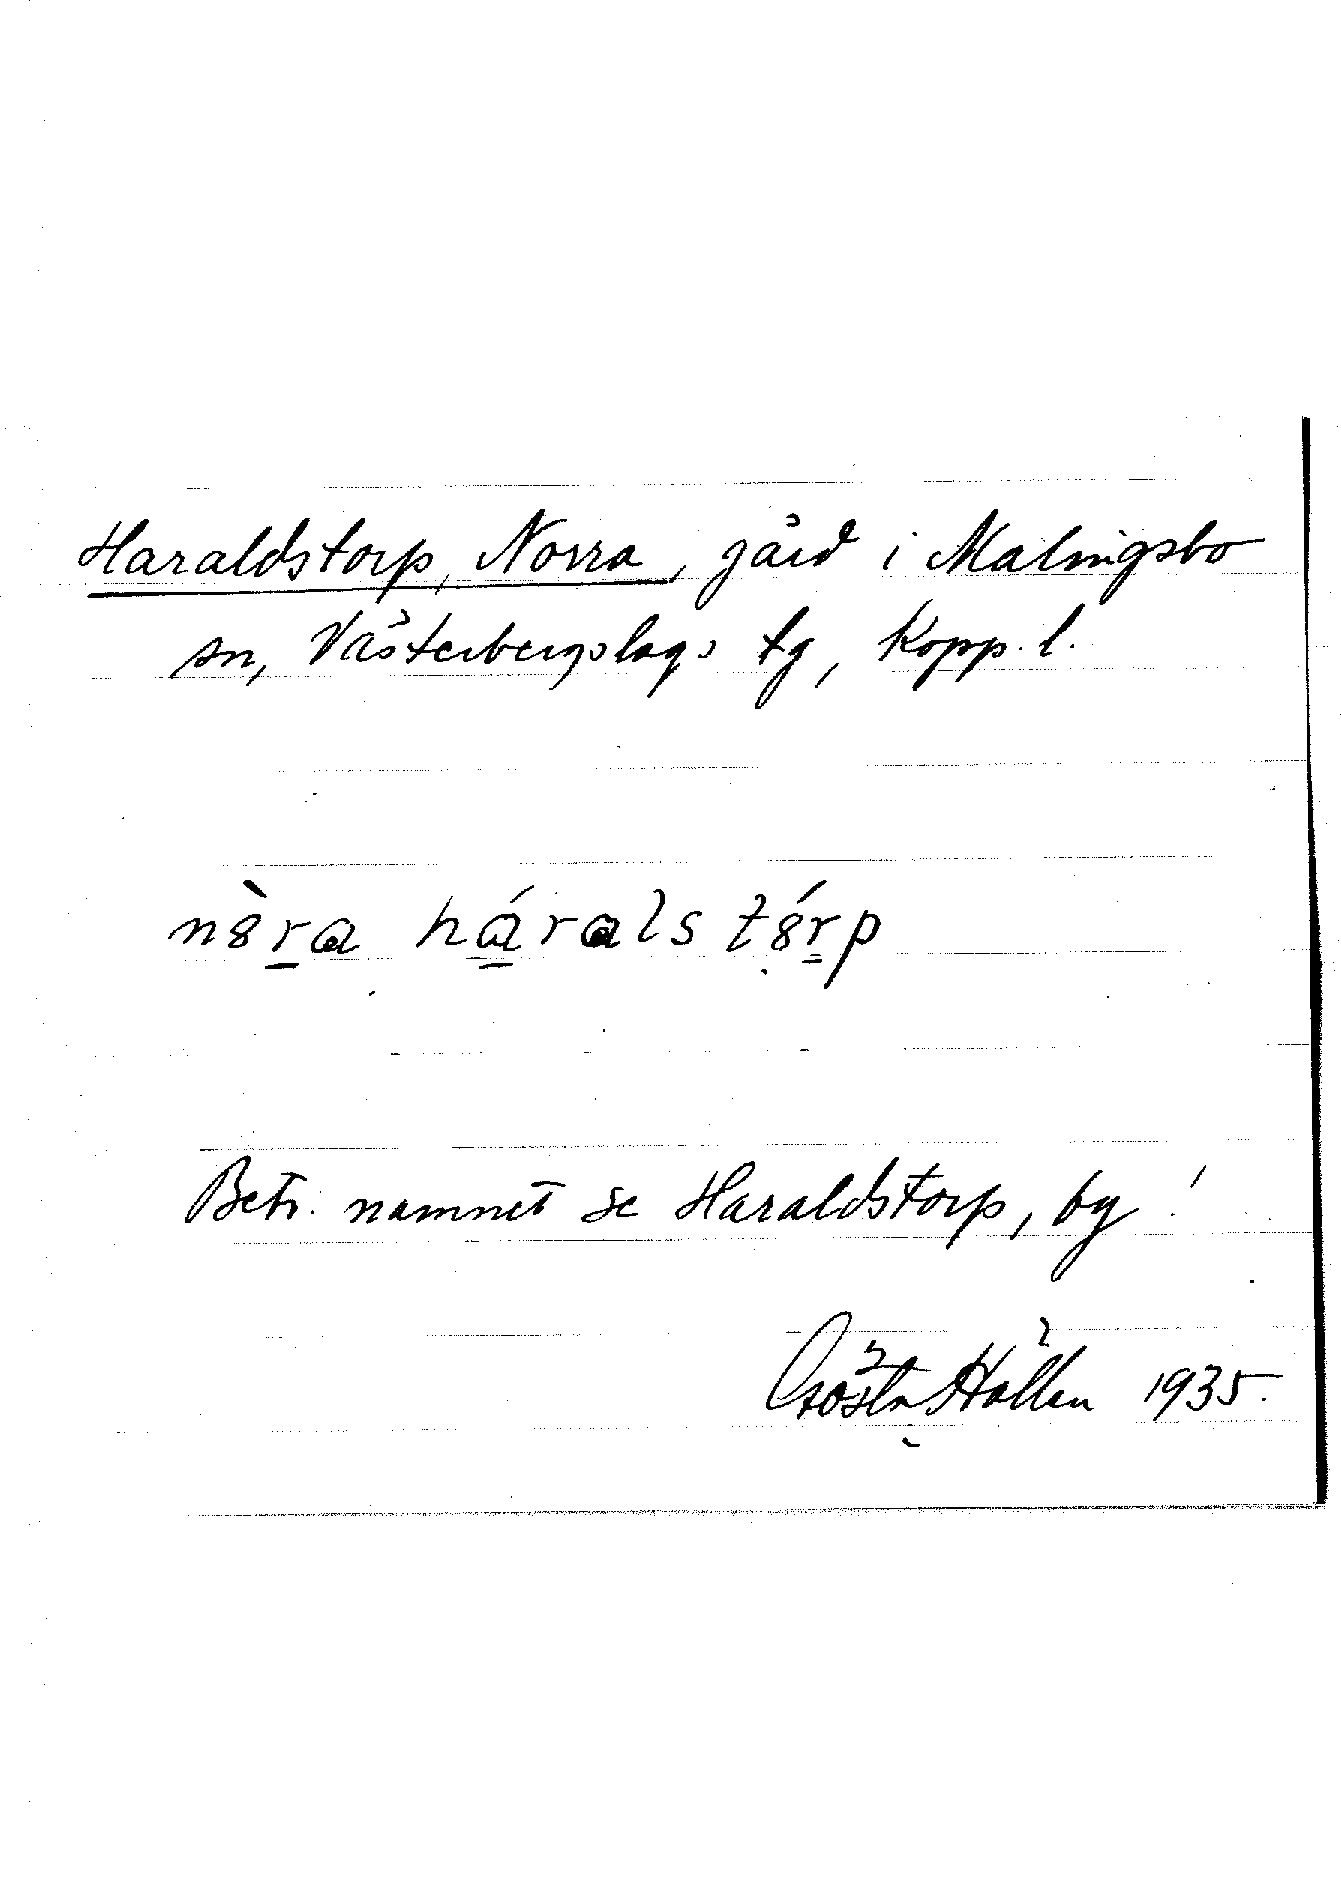 Haraldstorp, Norra, gård i Malingsbo
sn, Västerbergslags tg, Kopp. l.
nòra háralstórp
Betr. namnet se Haraldstorp, by!
Gösta Hallén 1935.